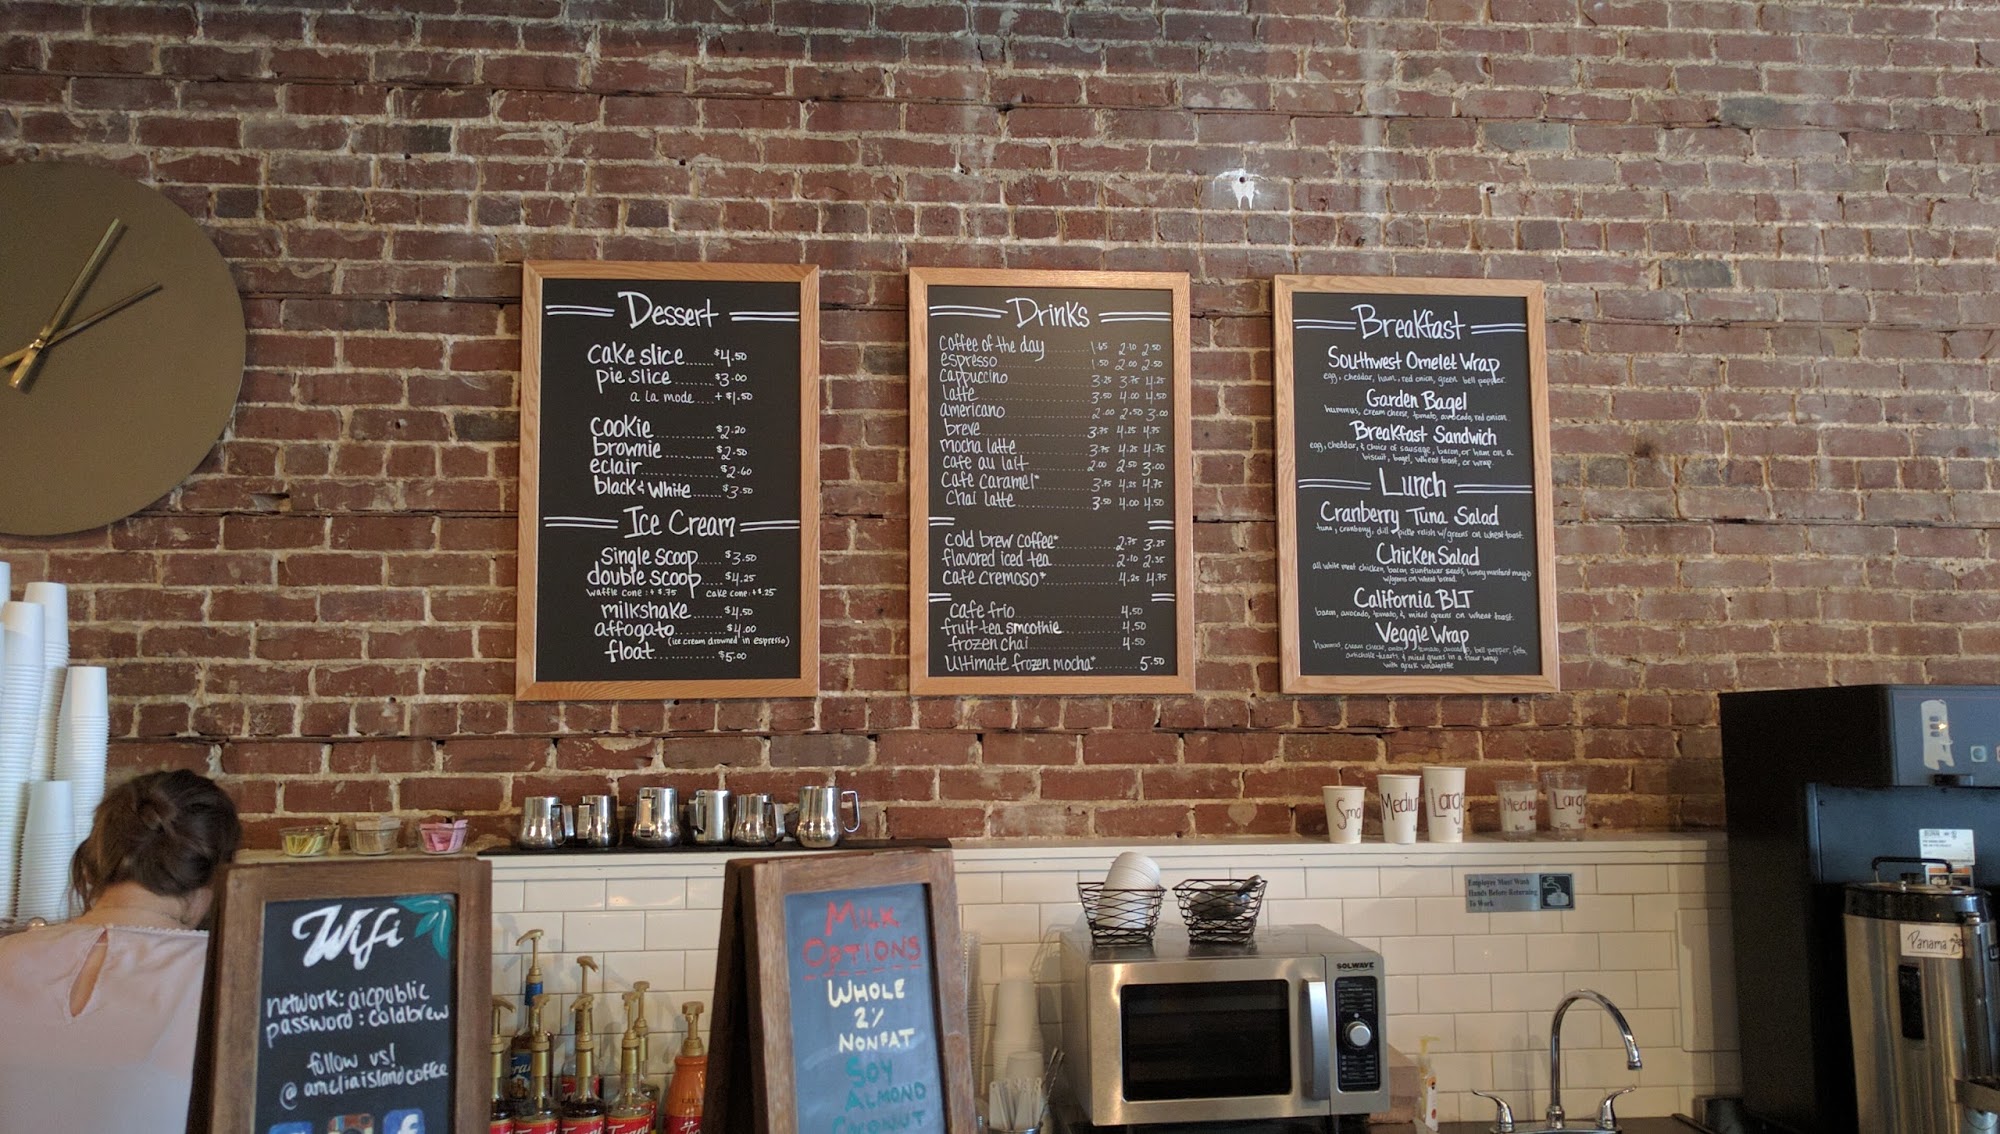 Dessert
cake slice......$4.50
pie slice........$3.00
a la mode....+$1.50
cookie..............$2.20
brownie............$2.50
eclair................$2.60
black & white......$3.50
Ice Cream
single scoop....$3.50
double scoop....$4.25
waffle cone: +$.75 cake cone: +$.25
milkshake.......$4.50
affogato..........$4.00
(ice cream drowned in espresso)
float..............$5.00
Drinks
coffee of the day......... 1.85 2.10 2.50
espresso................ 1.50 2.00 2.50
cappuccino............. 3.25 3.75 4.25
latte...................... 3.50 4.00 4.50
americano.............. 2.00 2.50 3.00
breve.................... 3.75 4.25 4.75
mocha latte............ 3.75 4.25 4.75
cafe au lait............ 2.00 2.50 3.00
cafe caramel*......... 3.75 4.25 4.75
chai latte.............. 3.50 4.00 4.50
cold brew coffee*......... 2.75 3.25
flavored iced tea......... 2.10 2.35
cafe cremoso*............ 4.25 4.75
cafe frio.................. 4.50
fruit tea smoothie........ 4.50
frozen chai............... 4.50
ultimate frozen mocha*...... 5.50
Breakfast
Southwest Omelet Wrap
egg, cheddar, ham, red onion, green bell pepper
Garden Bagel
hummus, cream cheese, tomato, avocado, red onion
Breakfast Sandwich
egg, cheddar, & choice of sausage, bacon, or ham on a
biscuit, bagel, wheat toast, or wrap.
Lunch
Cranberry Tuna Salad
tuna, cranberry, dill pickle relish w/greens on wheat toast.
Chicken Salad
all white meat chicken, bacon, sunflower seeds, honey mustard mayo
w/greens on wheat bread.
California BLT
bacon, avocado, tomato, & mixed greens on wheat toast.
Veggie Wrap
hummus, cream cheese, onion, tomato, avocado, bell pepper, feta,
artichoke hearts, & mixed greens in a flour wrap
with greek vinaigrette
Small
Medium
Large
Medium
Large
Wifi
network: aicpublic
password: coldbrew
follow us!
@ameliaislandcoffee
MILK
OPTIONS
WHOLE
2%
NONFAT
SOY
ALMOND
COCONUT
Employees Must Wash
Hands Before Returning
To Work
SOLWAVE
Panama
Torani